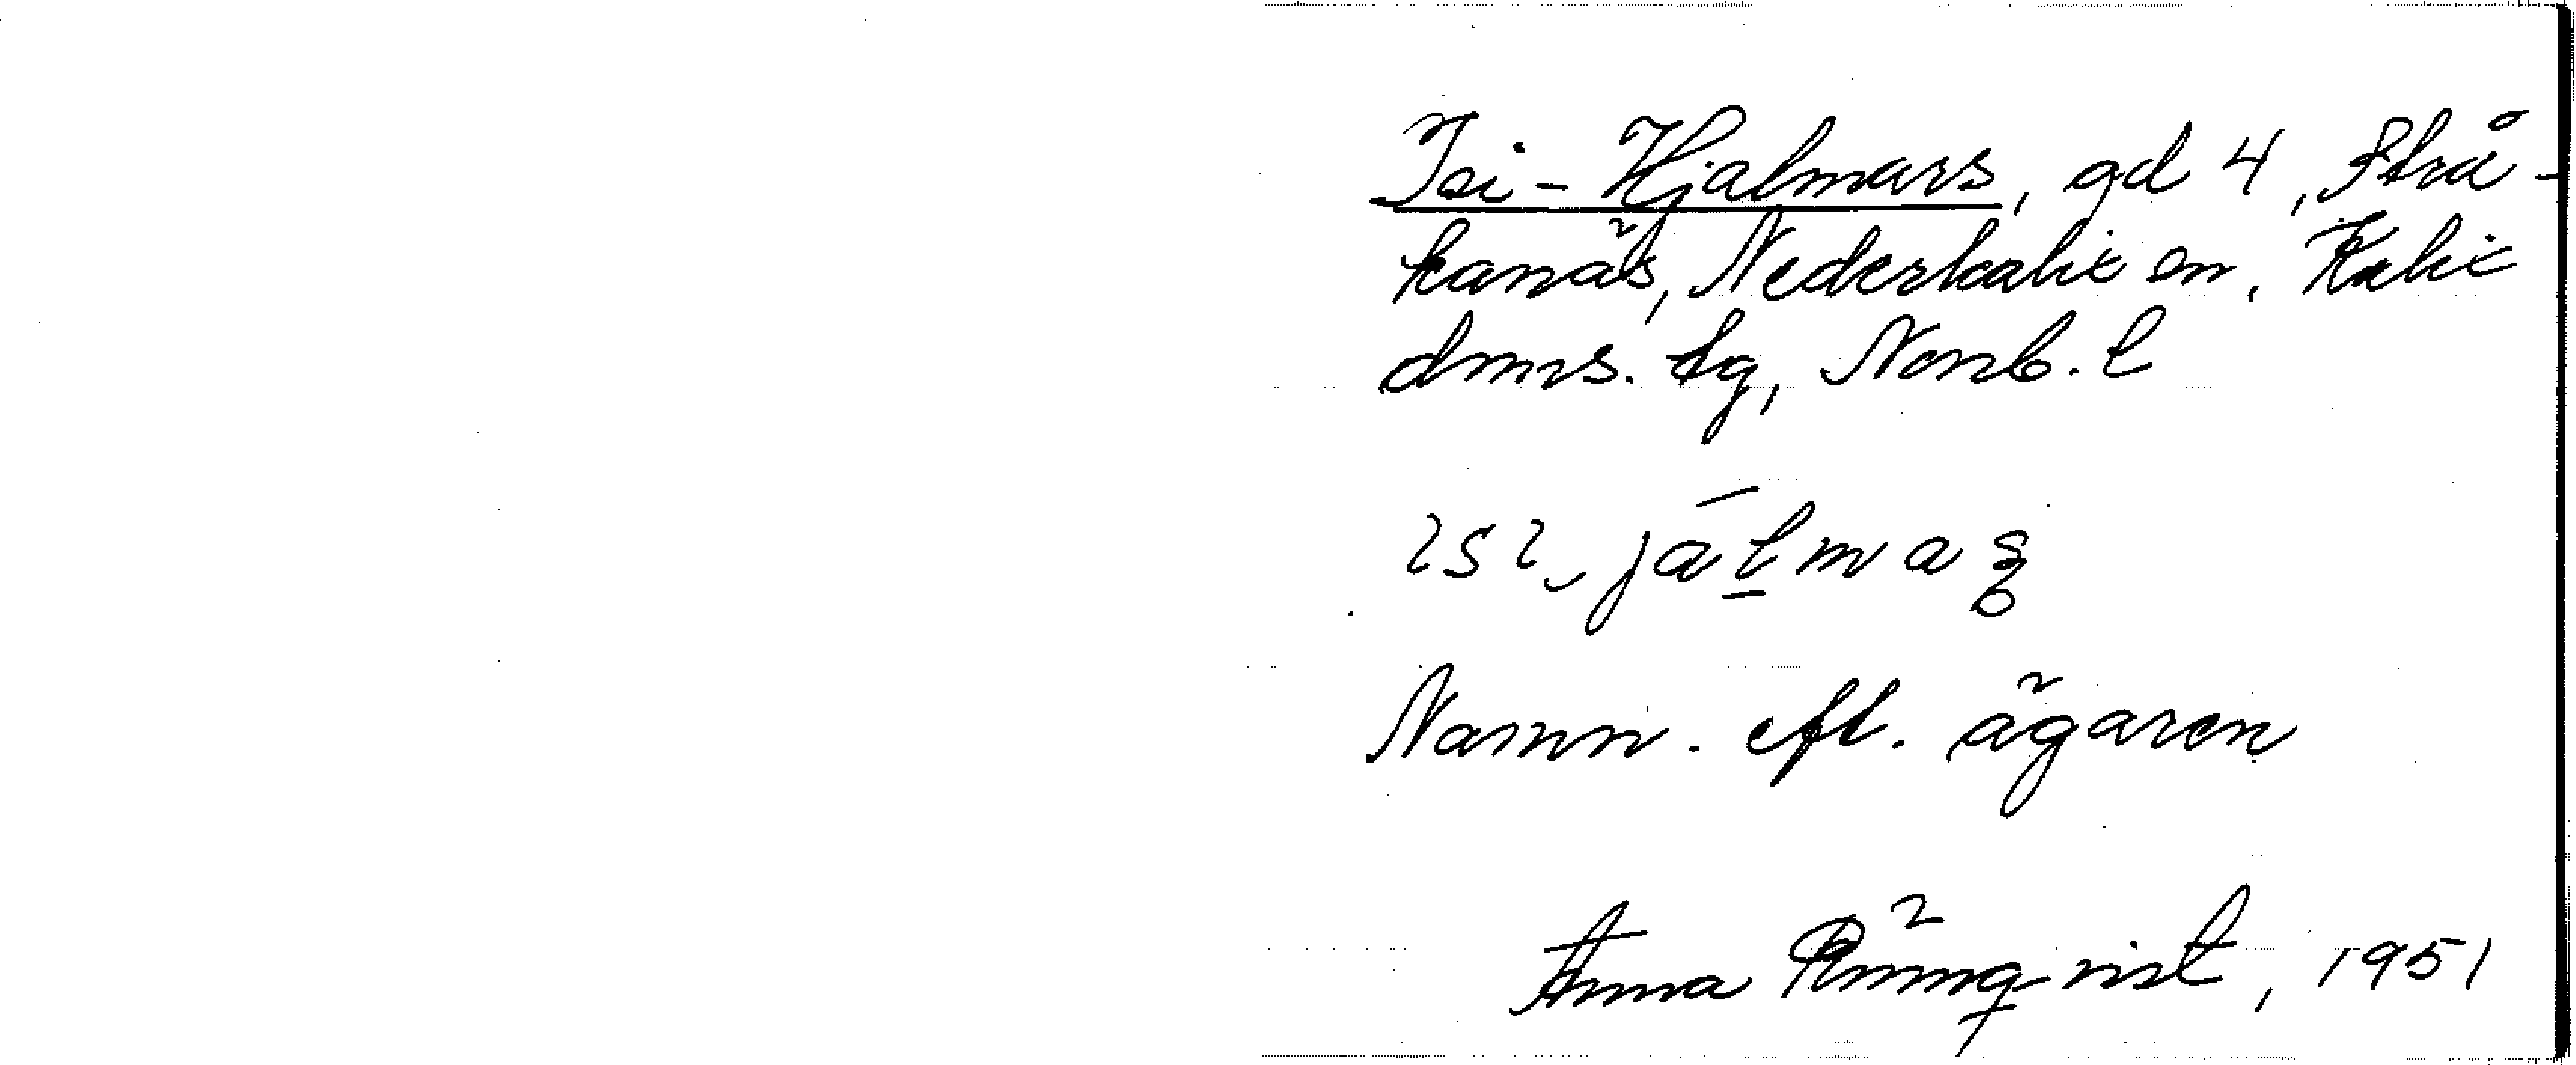 Isi-Hjalmars, gd 4, Strå-
kanäs, Nederkalix sn, Kalix
dms. tg, Norrb. l
ɩsɩ jálmaʂ
Namn. eft. ägaren
Anna Rönnqvist, 1951